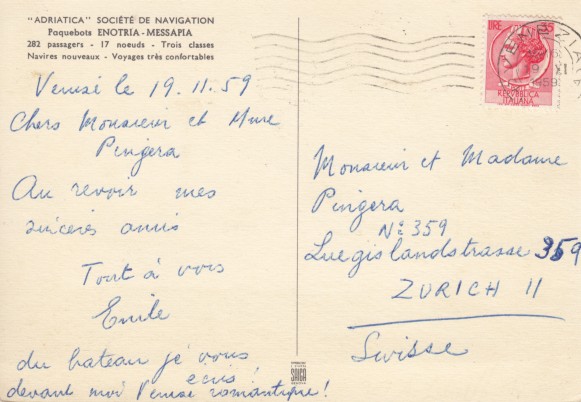 "ADRIATICA" SOCIÉTÉ DE NAVIGATION
Paquebots ENOTRIA - MESSAPIA
282 passagers - 17 noeuds - Trois classes
Navires nouveaux - Voyages très confortables
Venise le 19.11.59
Chers Monsieur et Mme
Pingera
Au revoir mes
sincères amis
Tout à vous
Emile
du bateau je vous
écris,
devant moi Venise romantique!
LIRE 35
REPVBBLICA
ITALIANA
VENEZIA
1959
Monsieur et Madame
Pingera
No: 359
Luegislandstrasse 359
ZURICH 11
Suisse
SAIGA